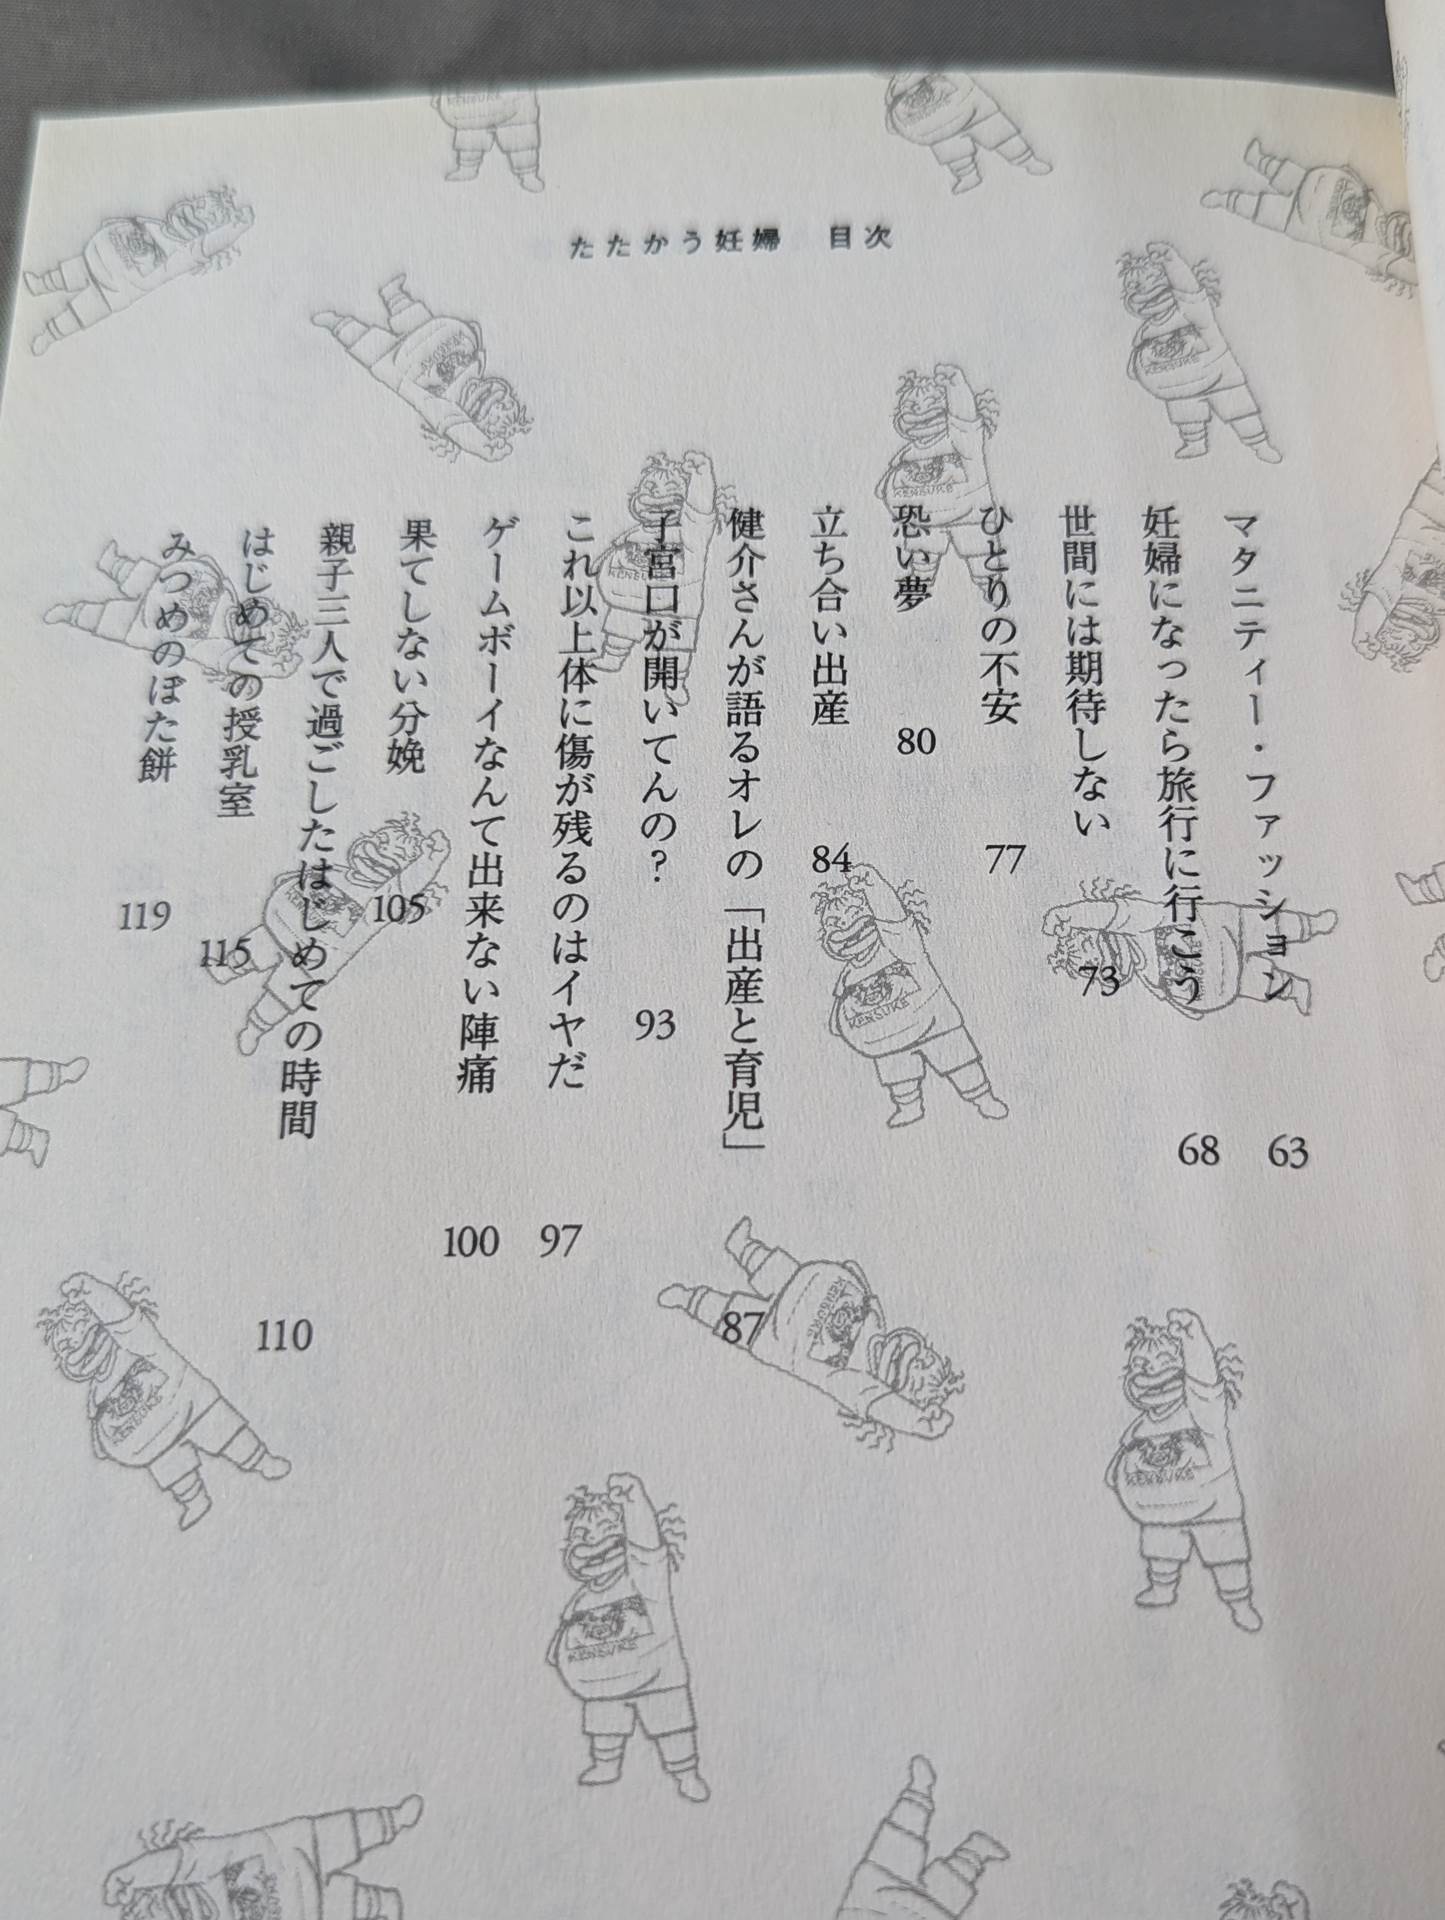 たたかう妊婦　目次
マタニティー・ファッション 63
妊婦になったら旅行に行こう 68
世間には期待しない 73
ひとりの不安 77
恐い夢 80
立ち合い出産 84
健介さんが語るオレの「出産と育児」 87
子宮口が開いてんの？ 93
これ以上体に傷が残るのはイヤだ 97
ゲームボーイなんて出来ない陣痛 100
果てしない分娩 105
親子三人で過ごしたはじめての時間 110
はじめての授乳室 115
みつめのぼた餅 119
KENSUKE
KENSUKE
KENSUKE
KENSUKE
KENSUKE
KENSUKE
KENSUKE